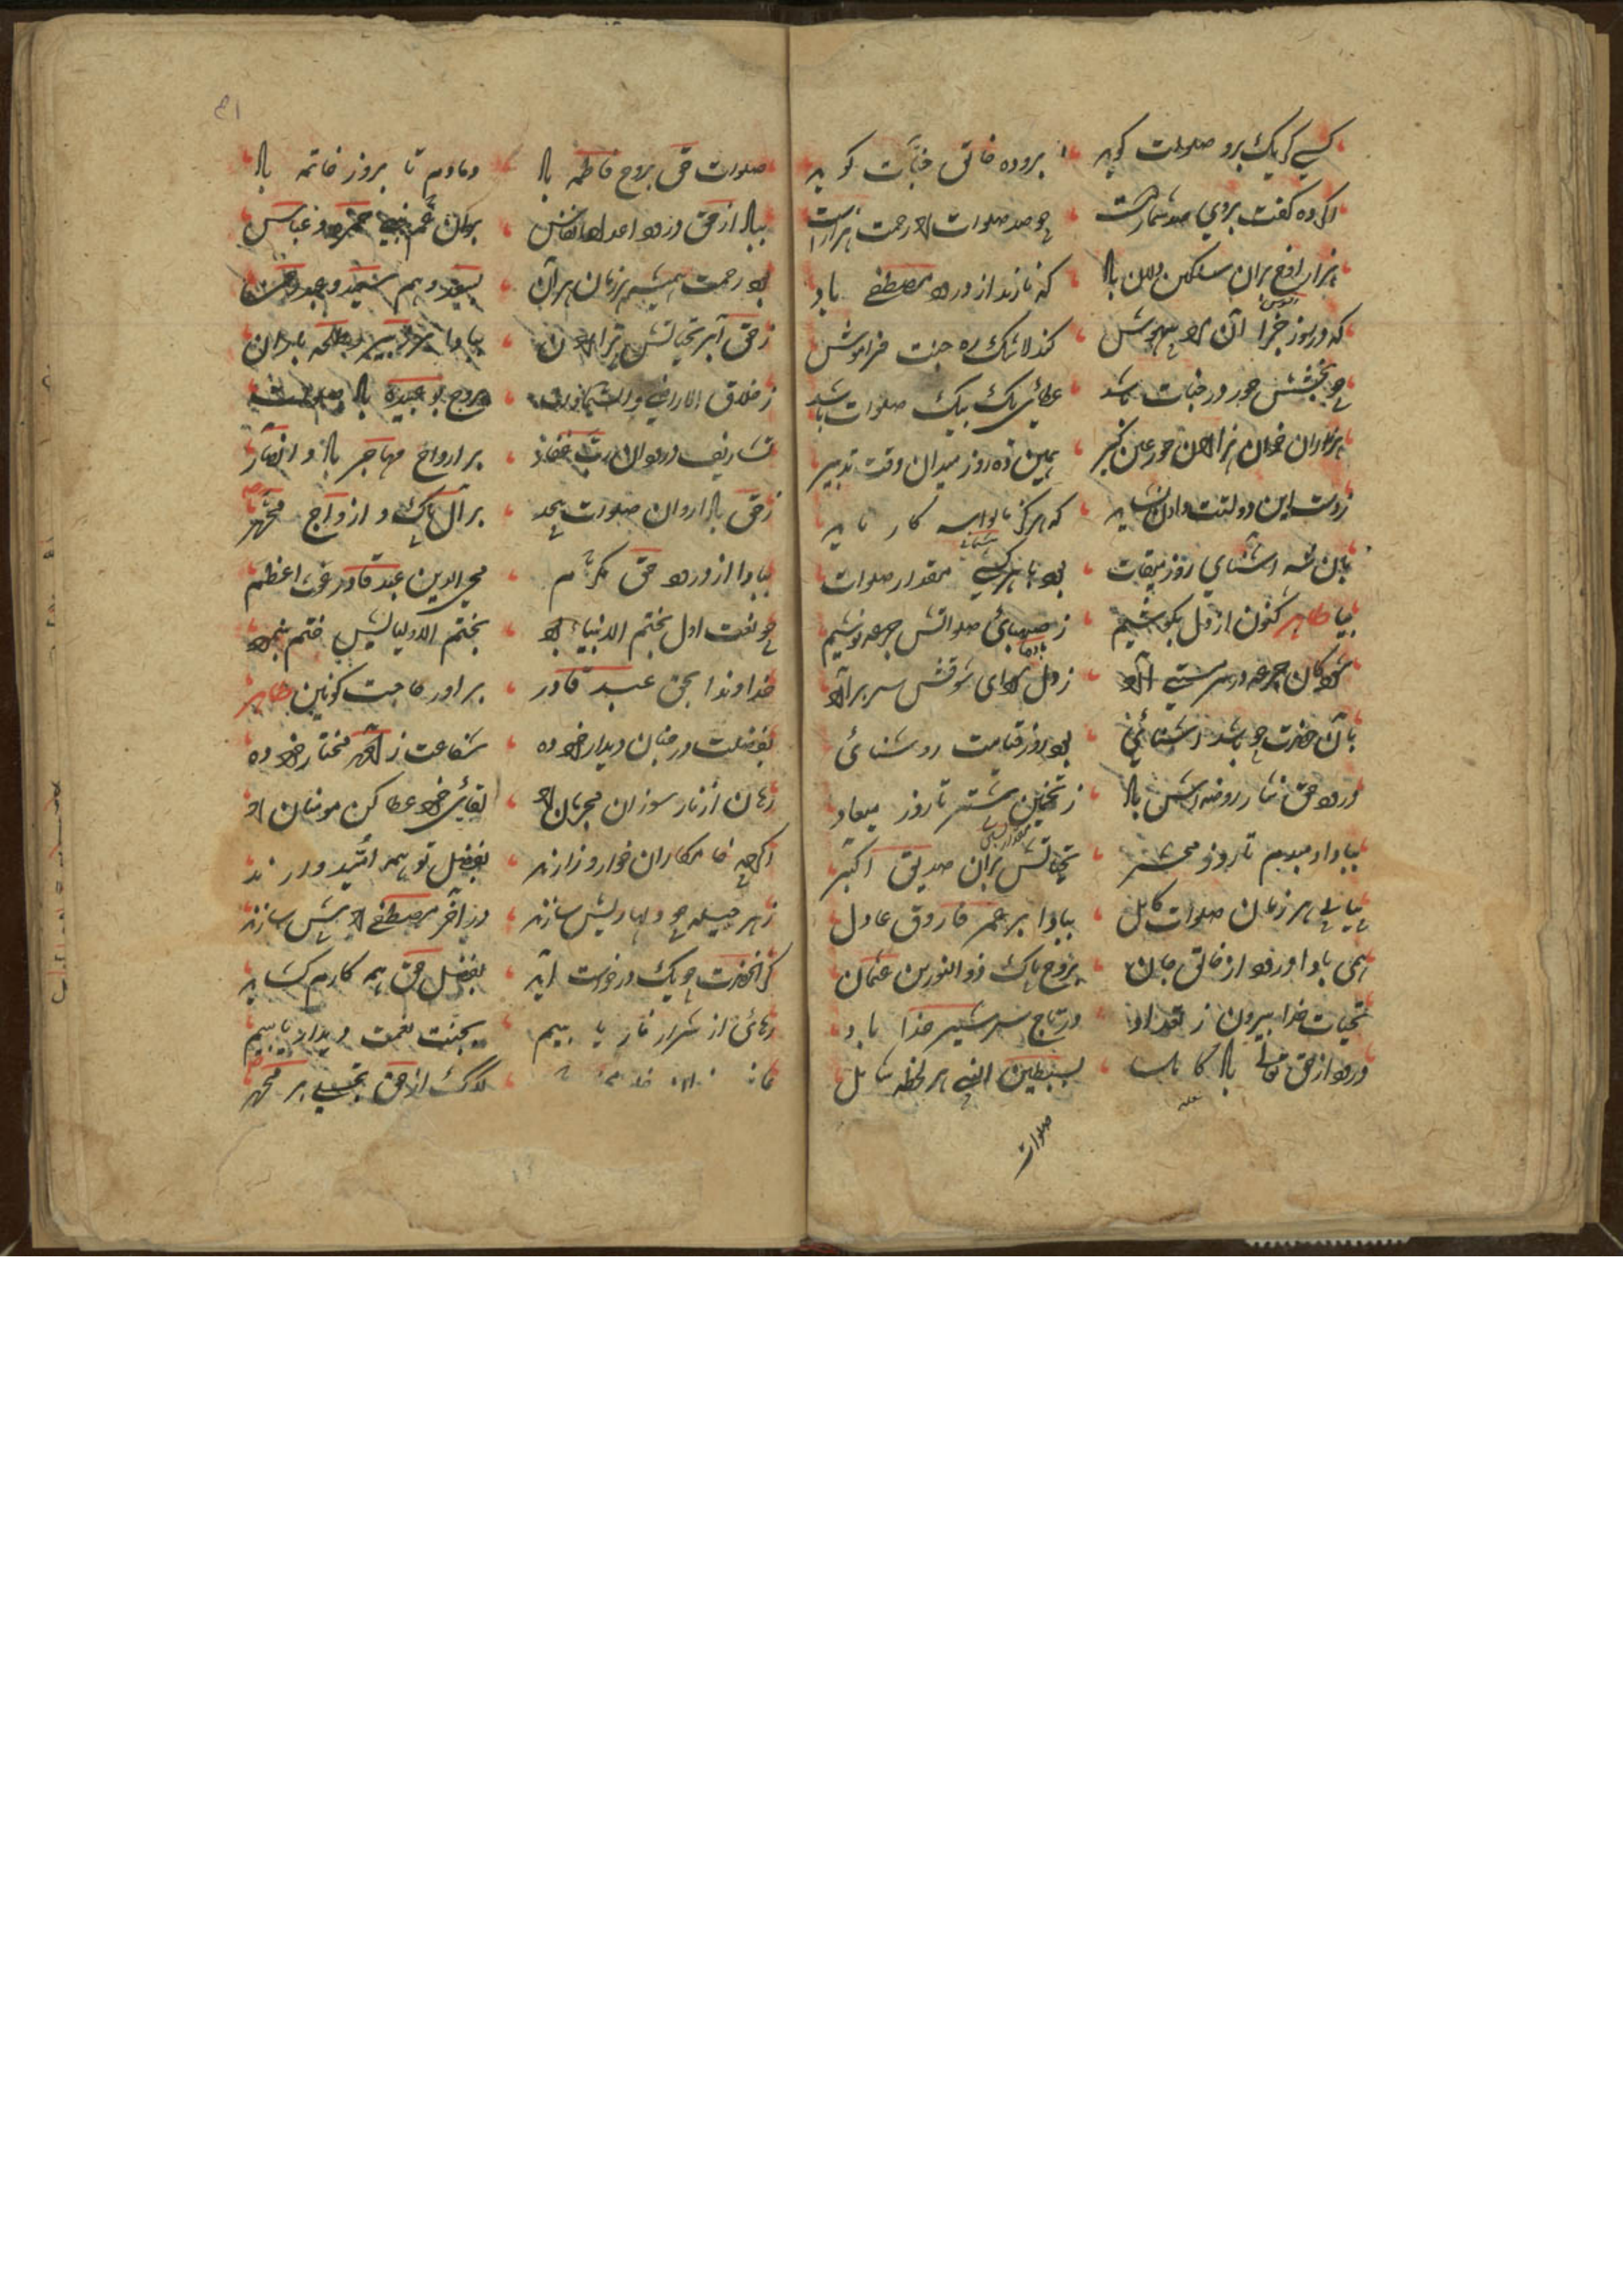 کسی کو یک برو صلوات گوید برو ده خالق جنات گوید
اگر ده گفت بروی صد شمارست چو صد صلوات را رحمت هزارست
هزار افسوس بران مسکین دلان باد که نازند از درود مصطفی یاد
که در روز جزا آن را بیهوش کند لاشک ره جنت فراموش
چو بخشش حور در جنات باشد عطائی یک بیک صلوات باشد
هزاران خوان هزاران حور عین گیر همین ده روز میدان وقت تدبیر
ز دست این دولتت دادن نشاید که هرگز مالواسه کار ناید
بان شه آشنای روز میقات بود با هر کسی مقدار صلوات
بیا طاهر کنون از دل بکوشیم ز صهبای صلواتش جرعه نوشیم
شود کان جرعه در سرمستی آرد ز دل سودای شوقش سر برآرد
بآن حضرت چو باشد آشنائی بود روز قیامت روشنائی
درود حق نثار روضه اش باد ز تخمین بیشتر تا روز میعاد
بباداد مبدم تا روز محشر تحیاتش بران صدیق اکبر
بیاپی هر زمان صلوات کامل ببادا بر عمر فاروق عادل
همی بادا درود از خالق جان بروح پاک ذوالنورین عثمان
تحیات خدا بیرون ز تعداد در تاج سر شیر خدا باد
درود از حق تعالی باد کامل بسبطین النبی هر لحظه شامل
صلوات
۶۱
صلوات حق بروح فاطمه باد دمادم تا بروز خاتمه باد
بباد از حق درود اعداد انفاس بران عم نبی حمزه و عباس
بود رحمت همیشه هر زمان بر آن بسعد و هم سعید و عبد رحمن
ز حق آبر تحیاتش هزاران ببادا بر زبیر و طلحه باران
ز خلاق الاراضی والسموات بروح بو عبیده باد صلوات
تشاریف درود آن رب غفار بر ارواح مهاجر باد و انصار
ز حق باد اروان صلوات بیحد بر آل پاک و ازواج محمد
ببادا از درود حق مکرم محی الدین عبد قادر غوث اعظم
چو نعت اول بختم الانبیا بود بختم الاولیا لیس ختم بنمود
خداوندا بحق عبد قادر برآور حاجت کونین طاهر
بفضلت در جنان دیدار خود ده شفاعت ز احمد مختار خود ده
رهان از نار سوزان مجرمان را لقائی خود عطا کن مومنان را
اگرچه خامکاران خوار و زارند بفضل تو همه امید وارند
ز هر حیله چو دلها ریش سازند در آخر مصطفی را پیش سازند
گر آنحضرت چو یک درخواست آید بفضل حق همه کارم گشاید
رهائی از شرار نار یابیم بجنت نعمت دیدار یابیم
لک از حق تجلی بر محمد